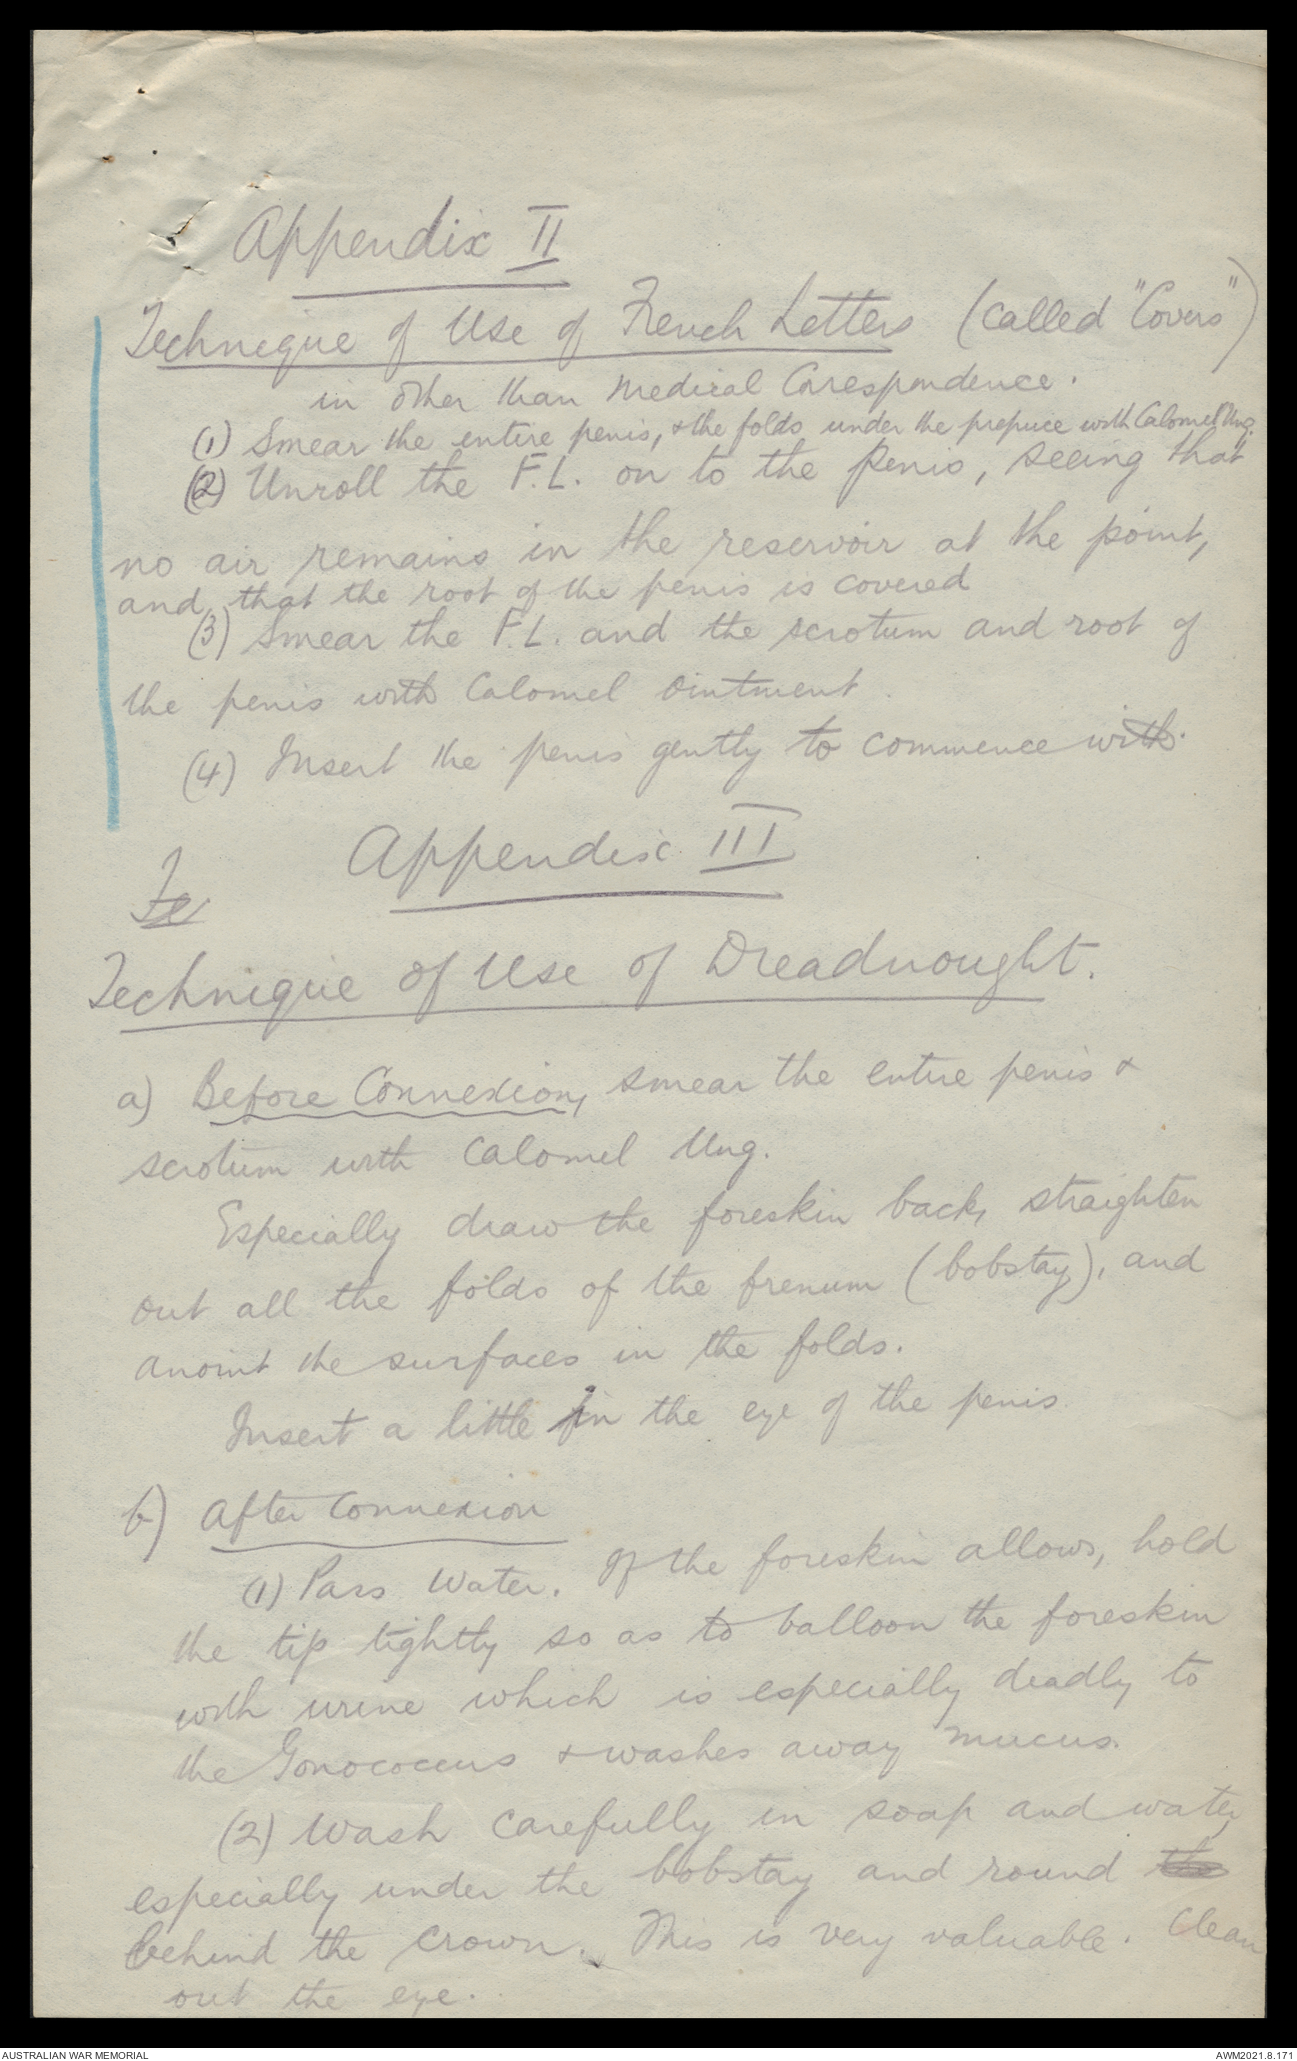 Appendix II
Technique of Use of French Letters (called "Covers")
in other than Medical Corespondence.
(1) Smear the entire penis, & the folds under the prepuce with Calomel Ung.
(2) Unroll the F.L. on to the penis, seeing that
no air remains in the reservoir at the point,
and, that the root of the penis is covered
(3) Smear the F.L. and the scrotum and root of
the penis with Calomel Ointment.
(4) Insert the penis gently to commence with.
Appendix III
Te
Technique of Use of Dreadnought.
a) Before Connexion, smear the entire penis &
scrotum with Calomel Ung.
Especially draw the foreskin back, straighten
out all the folds of the frenum (bobstay), and
anoint the surfaces in the folds.
Insert a little in the eye of the penis.
b) After Connexion
(1) Pass Water. If the foreskin allows, hold
the tip tightly so as to balloon the foreskin
with urine which is especially deadly to
the Gonococcus & washes away mucus.
(2) Wash carefully in soap and water,
especially under the bobstay and round the
behind the crown. This is very valuable. Clean
out the eye.
AUSTRALIAN WAR MEMORIAL
AWM2021.8.171